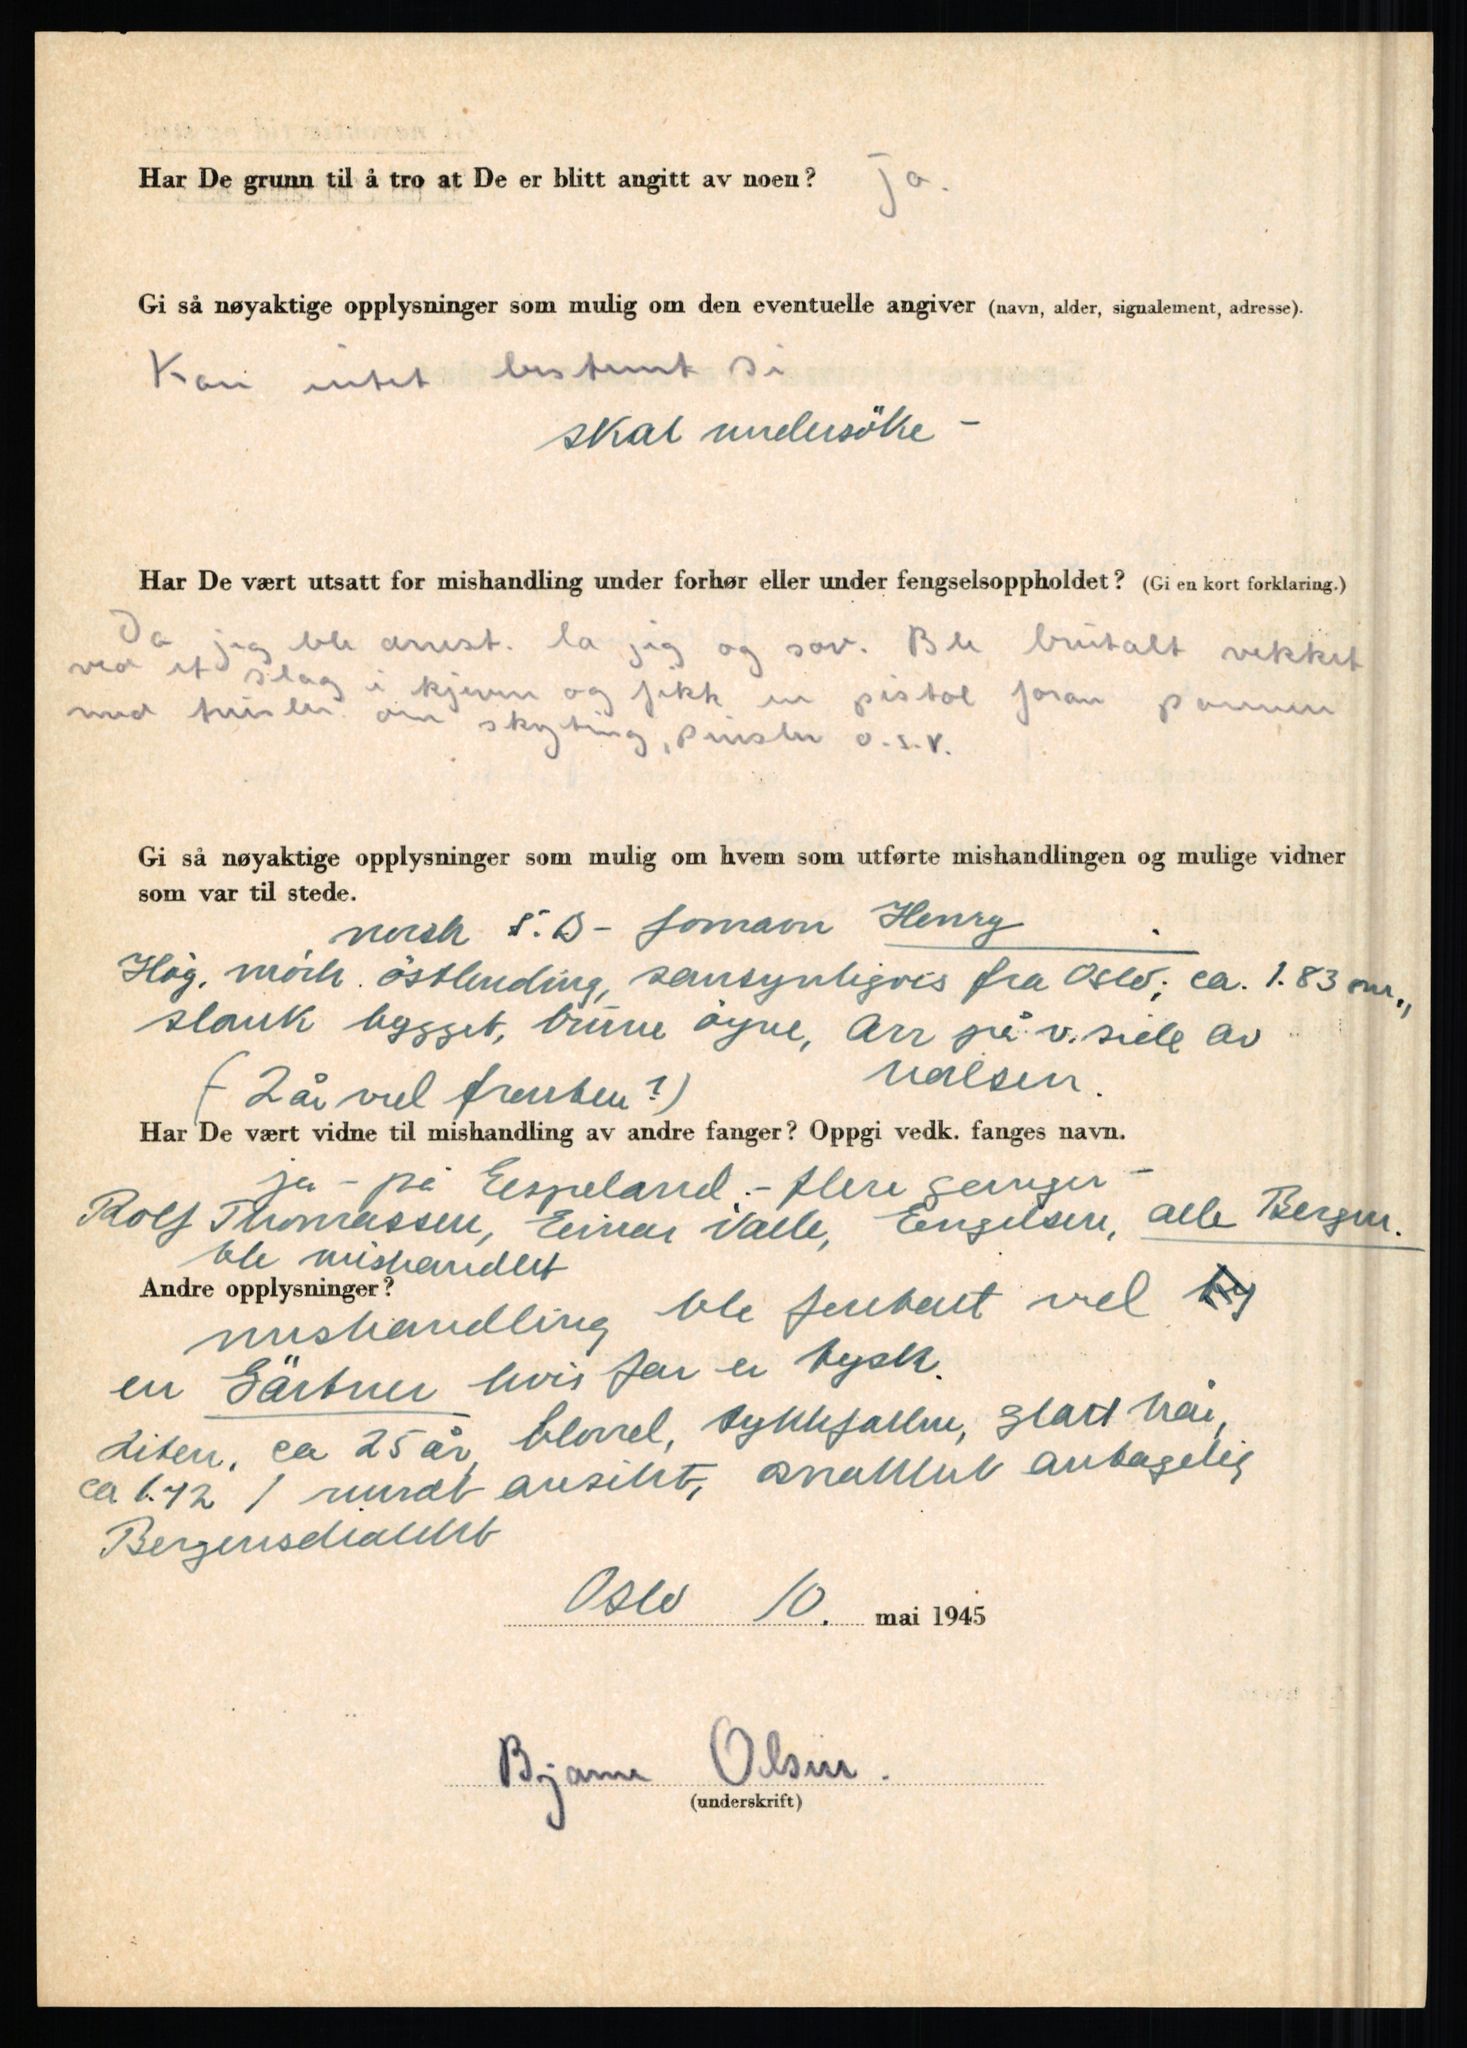 Har De grunn til å tro at De er blitt angitt av noen? Ja.
Gi så nøyaktige opplysninger som mulig om den eventuelle angiver (navn, alder, signalement, adresse).
Kan intet bestemt si
skal undersöke –
Har De vært utsatt for mishandling under forhør eller under fengselsoppholdet? (Gi en kort forklaring.)
Da jeg ble arrest. la jeg og sov. Ble brutalt vekket
ved et slag i kjeven og fikk en pistol foran pannen
med trusler om skyting, pinsler o.s.v.
Gi så nøyaktige opplysninger som mulig om hvem som utførte mishandlingen og mulige vidner
som var til stede.
norsk S.D – fornavn Henry
Høg, mörk östlending, sansynligvis fra Oslo; ca. 1.83 m.,
slank bygget, brune öyne, Arr på v. side av
halsen.
(– 2 år ved fronten?)
Har De vært vidne til mishandling av andre fanger? Oppgi vedk. fanges navn.
ja – på Espeland – flere ganger –
Rolf Thomassen, Einar Valle, Engelsen, alle Bergen.
ble mishandlet
Andre opplysninger?
mishandling ble foretatt ved
en Gärtner hvis far er tysk.
Liten, ca 25 år, blond, tykkfallen, glatt hår,
ca 1.72 / rundt ansikt, snakket antagelig
Bergensdialekt
Oslo 10. mai 1945
Bjarne Olsen.
(underskrift)